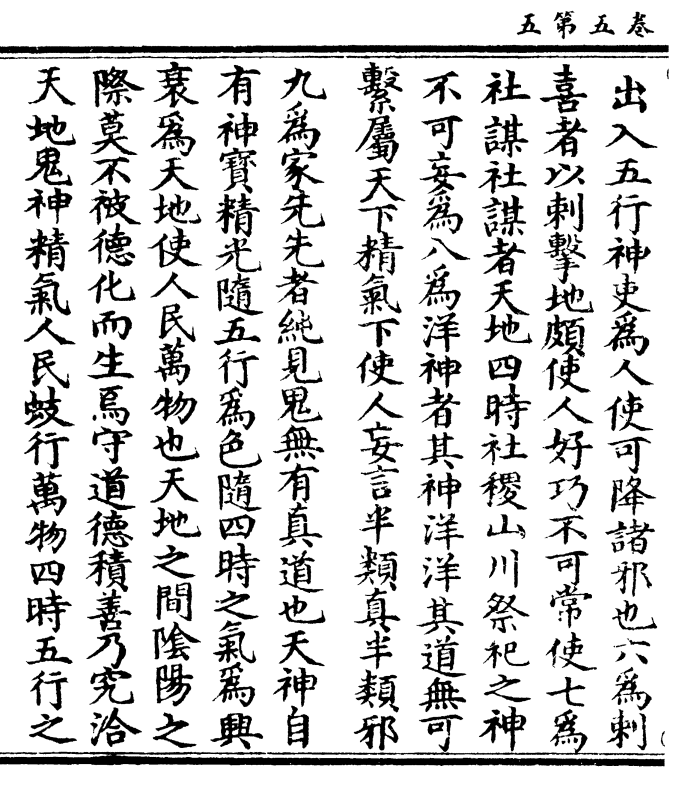 卷五第五
出入五行神吏爲人使可降諸邪也六爲刺
喜者以刺擊地頗使人好巧不可常使七爲
社謀社謀者天地四時社稷山川祭祀之神
不可妄爲八爲洋神者其神洋洋其道無可
繫屬天下精氣下使人妄言半類真半類邪
九爲家先先者純見鬼無有真道也天神自
有神寶精光隨五行爲色隨四時之氣爲興
衰爲天地使人民萬物也天地之間陰陽之
際莫不被德化而生焉守道德積善乃究洽
天地鬼神精氣人民蚑行萬物四時五行之